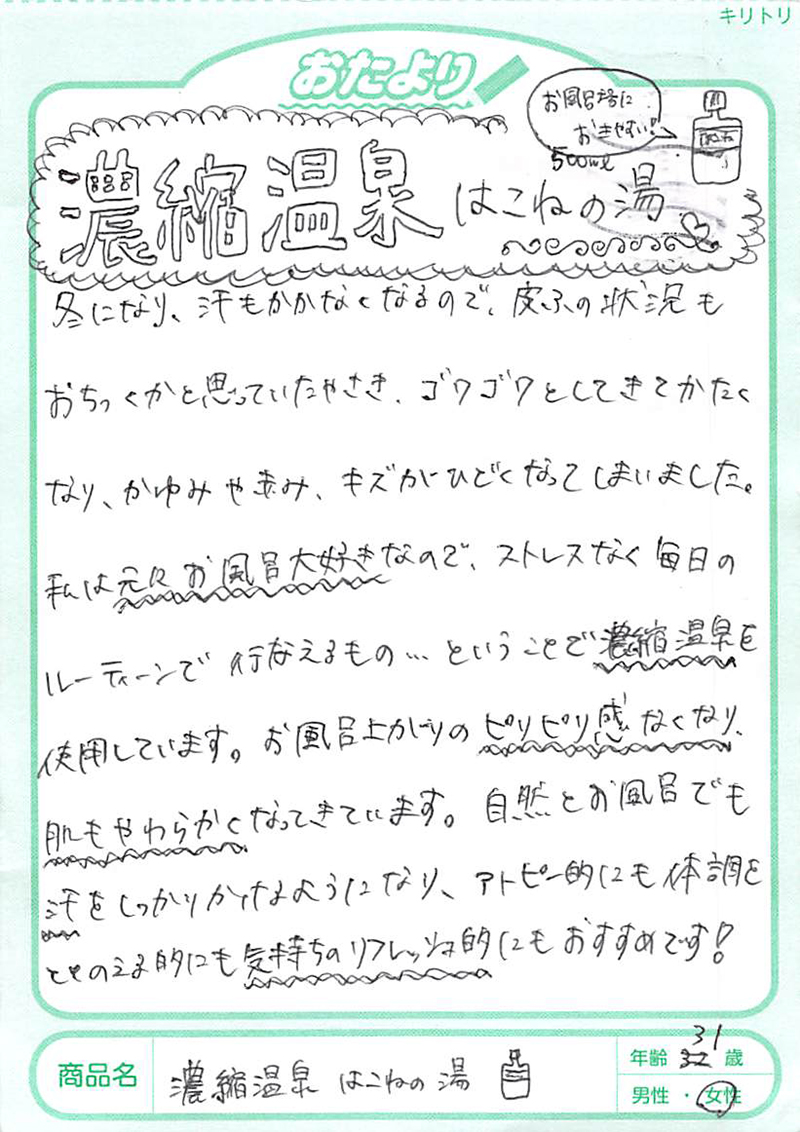 キリトリ
おたより
お風呂場に
おきやすい!
500ml
濃縮温泉 はこねの湯
冬になり、汗もかかなくなるので、皮ふの状況も
おちつくかと思っていたやさき、ゴワゴワとしてきてかたく
なり、かゆみや赤み、キズがひどくなってしまいました。
私は元々お風呂大好きなので、ストレスなく毎日の
ルーティーンで行なえるもの…ということで濃縮温泉を
使用しています。お風呂上がりのピリピリ感なくなり、
肌もやわらかくなってきています。自然とお風呂でも
汗をしっかりかけるようになり、アトピー的にも体調を
ととのえる的にも気持ちのリフレッシュ的にもおすすめです!
商品名 濃縮温泉 はこねの湯
年齢 31 歳
男性・女性